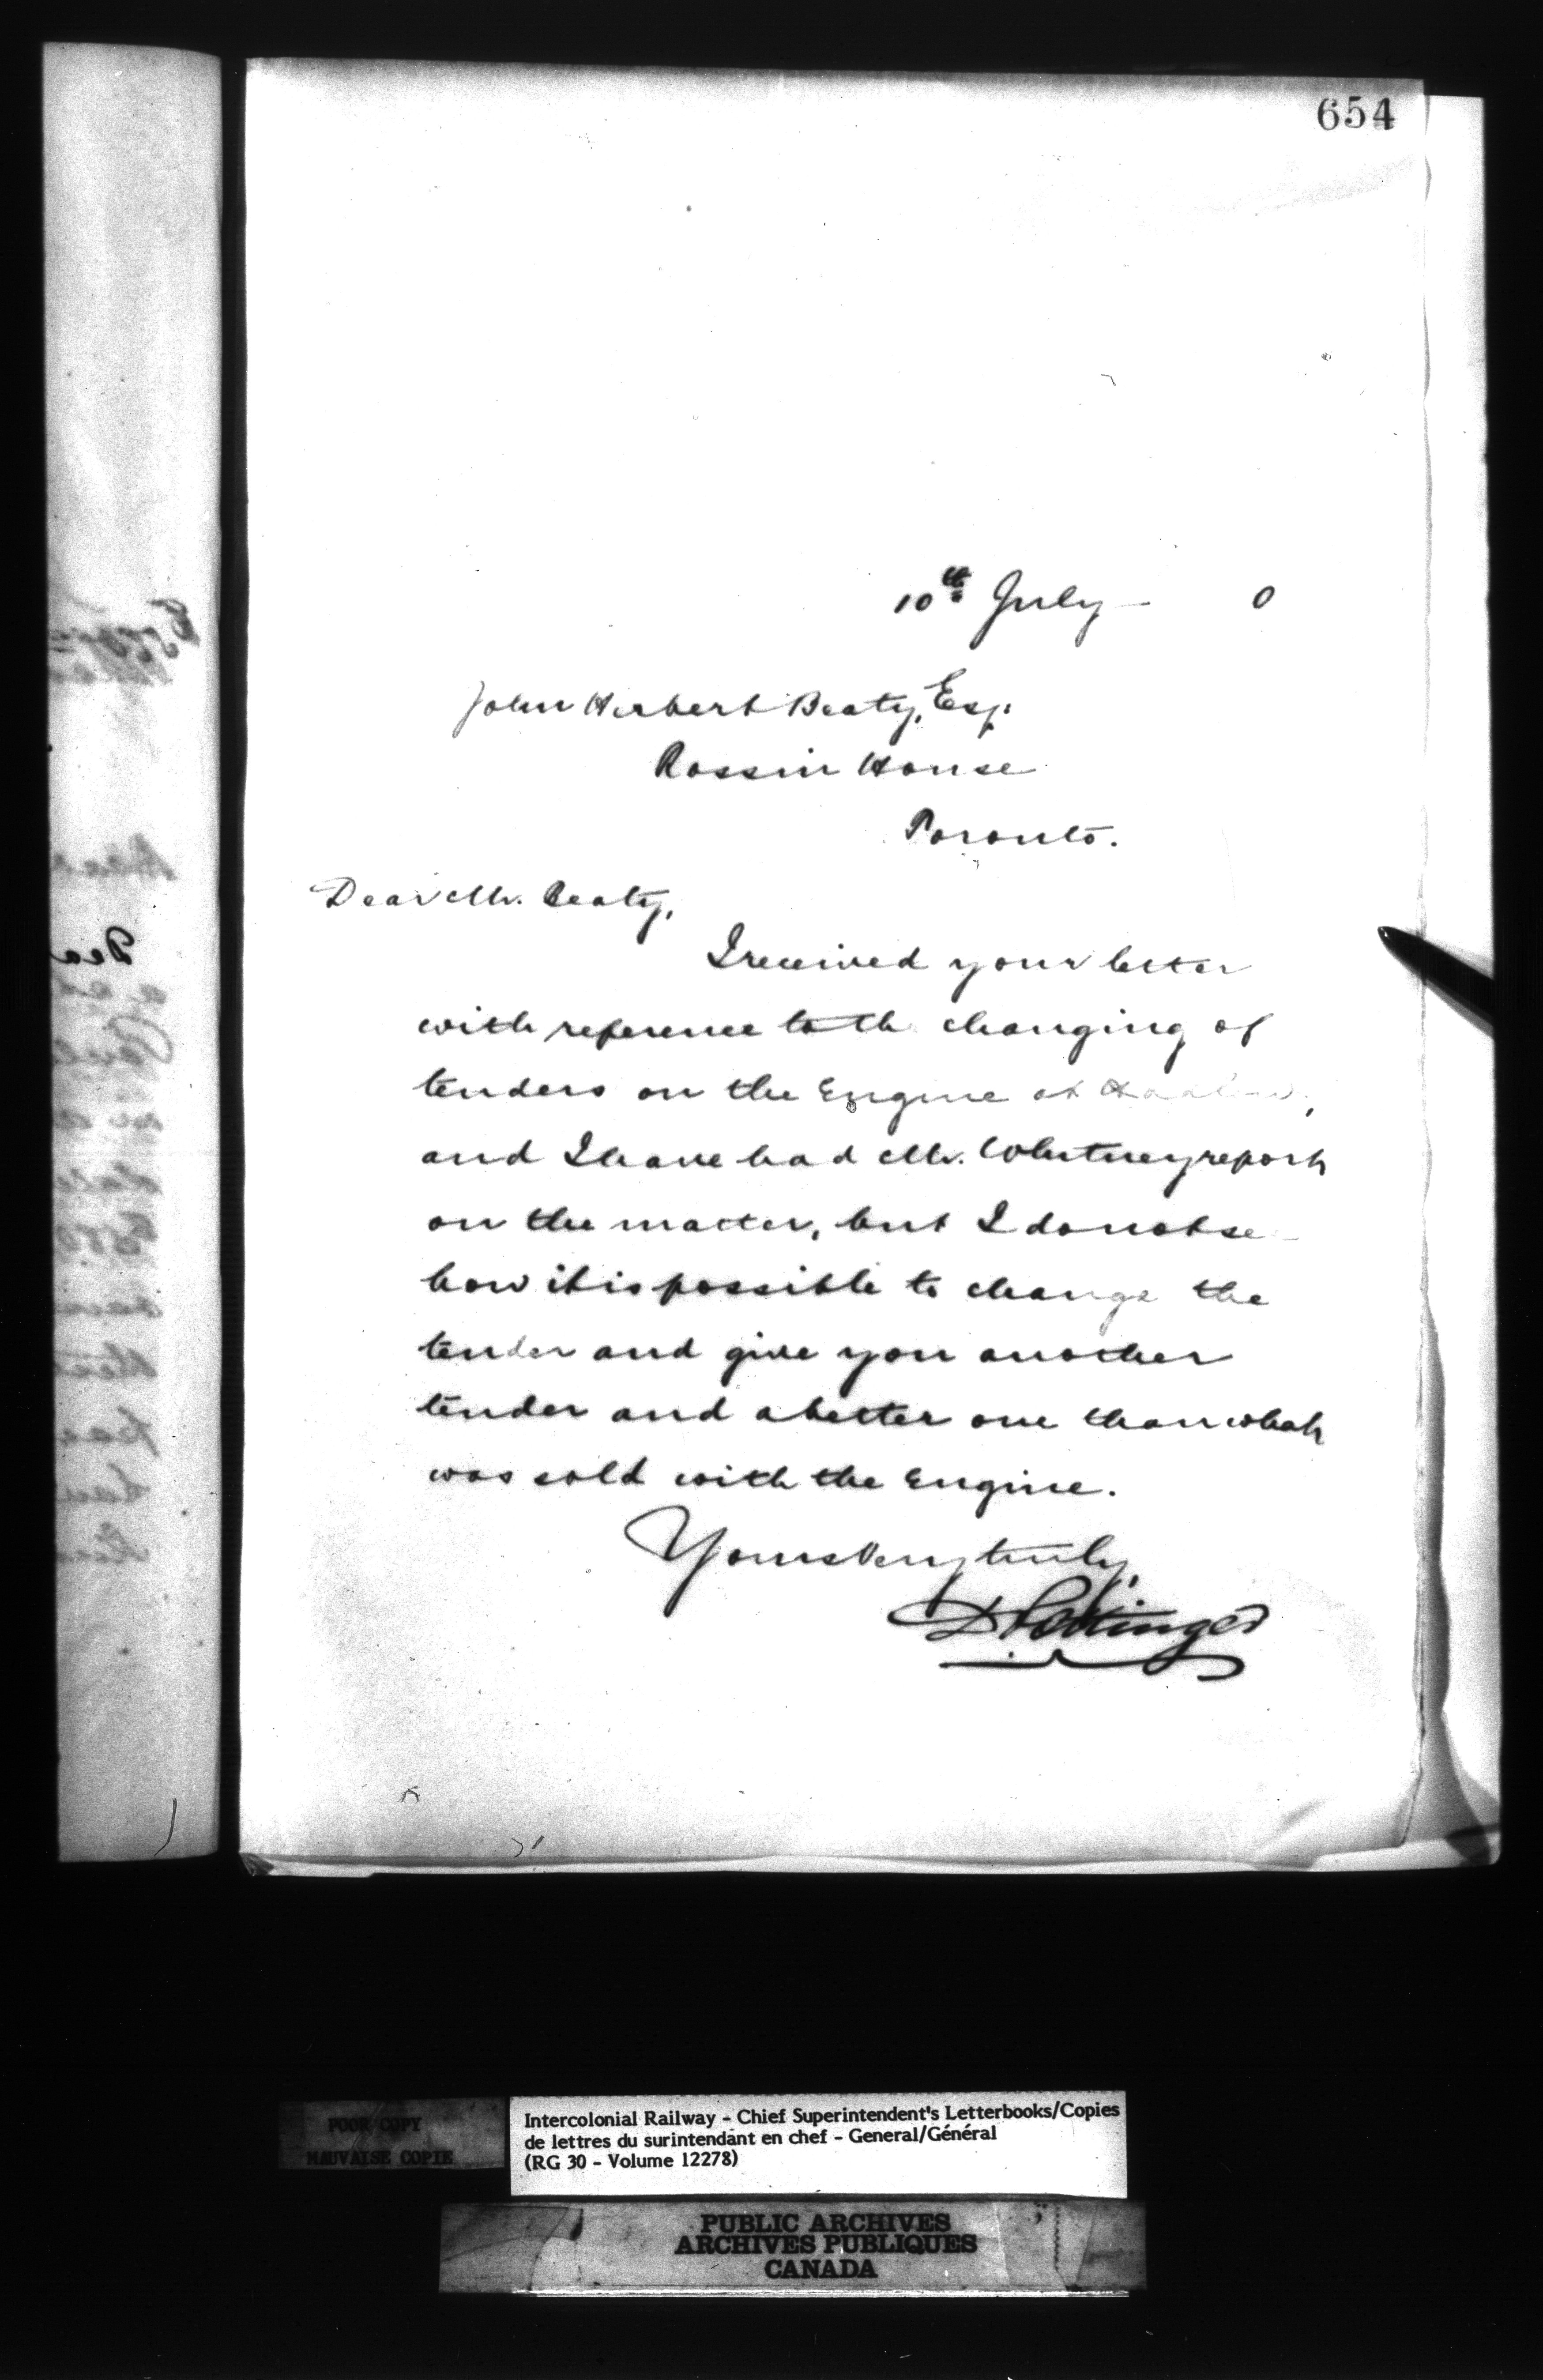 654
10th July - 0
John Herbert Beaty, Esq.
Rossin House
Toronto.
Dear Mr. Beaty,
I received your letter
with reference to the changing of
tenders on the Engine at
and I have had Mr. Whitney report
on the matter, but I do not see
how it is possible to change the
tender and give you another
tender and a better one than what
was sold with the Engine.
Yours very truly,
D Pottinger
POOR COPY
MAUVAISE COPIE
Intercolonial Railway - Chief Superintendent's Letterbooks/Copies
de lettres du surintendant en chef - General/Général
(RG 30 - Volume 12278)
PUBLIC ARCHIVES
ARCHIVES PUBLIQUES
CANADA